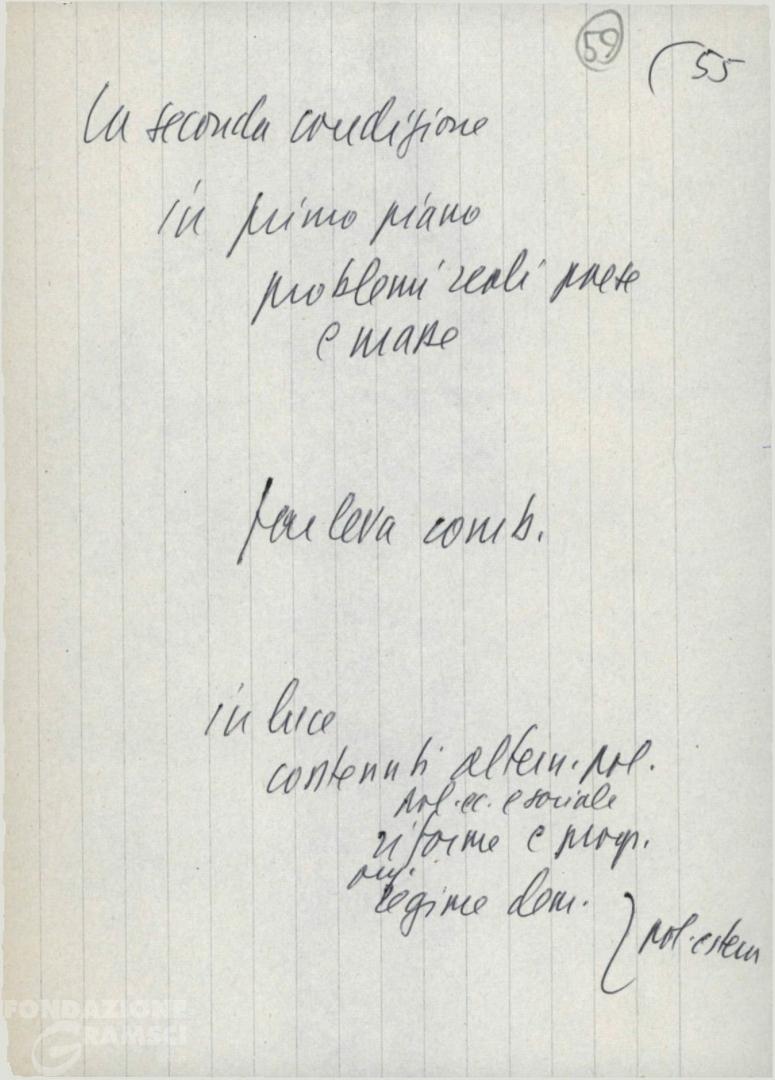 59
55
La seconda condizione
in primo piano
problemi reali paese
e masse
leva comb.
in luce
contenuti altern. pol.
pol. ec. e sociale
riforme e progr.
regime dem.
pol. estera
FONDAZIONE
GRAMSCI